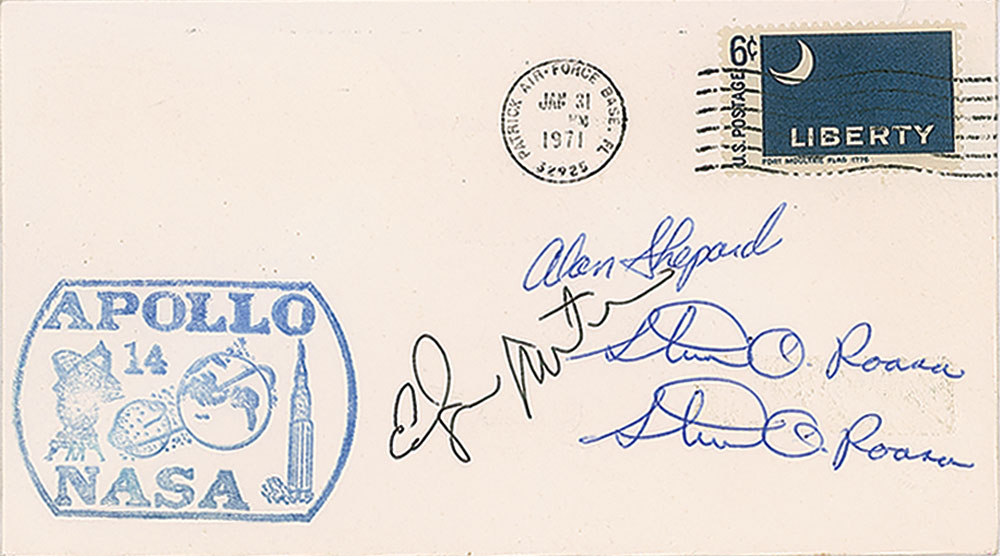 PATRICK AIR-FORCE BASE. FL
JAN 31
1971
32925
6¢
U.S. POSTAGE
LIBERTY
FORT MOULTRIE FLAG 1776
Alan Shepard
Edgar Mitchell
Stuart A. Roosa
Stuart A. Roosa
APOLLO
14
NASA